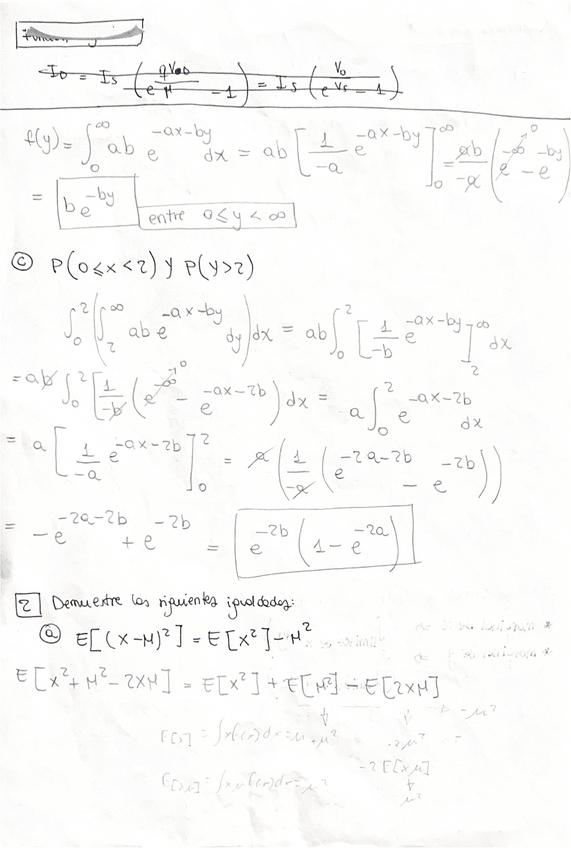 I₀ = Is (e^(qV₀₀/M) - 1) = Is (e^(V₀/Vs) - 1)
f(y) = ∫₀^∞ ab e^(-ax-by) dx = ab [1/-a e^(-ax-by)]₀^∞ = ab/-a (e^(-∞)→0 - e^(-by))
= be^(-by) entre 0≤y<∞
ⓒ P(0≤x<2) y P(y>2)
∫₀² (∫₂^∞ ab e^(-ax-by) dy) dx = ab ∫₀² [1/-b e^(-ax-by)]₂^∞ dx
= ab ∫₀² [1/-b (e^(-∞)→0 - e^(-ax-2b)) dx = a ∫₀² e^(-ax-2b) dx
= a [1/-a e^(-ax-2b)]₀² = a (1/-a (e^(-2a-2b) - e^(-2b)))
= -e^(-2a-2b) + e^(-2b) = e^(-2b) (1 - e^(-2a))
2 Demuestre las siguientes igualdades:
ⓐ E[(x-M)²] = E[x²] - M²
E[x²+M²-2xM] = E[x²] + E[M²] - E[2xM]
-2E[xμ]